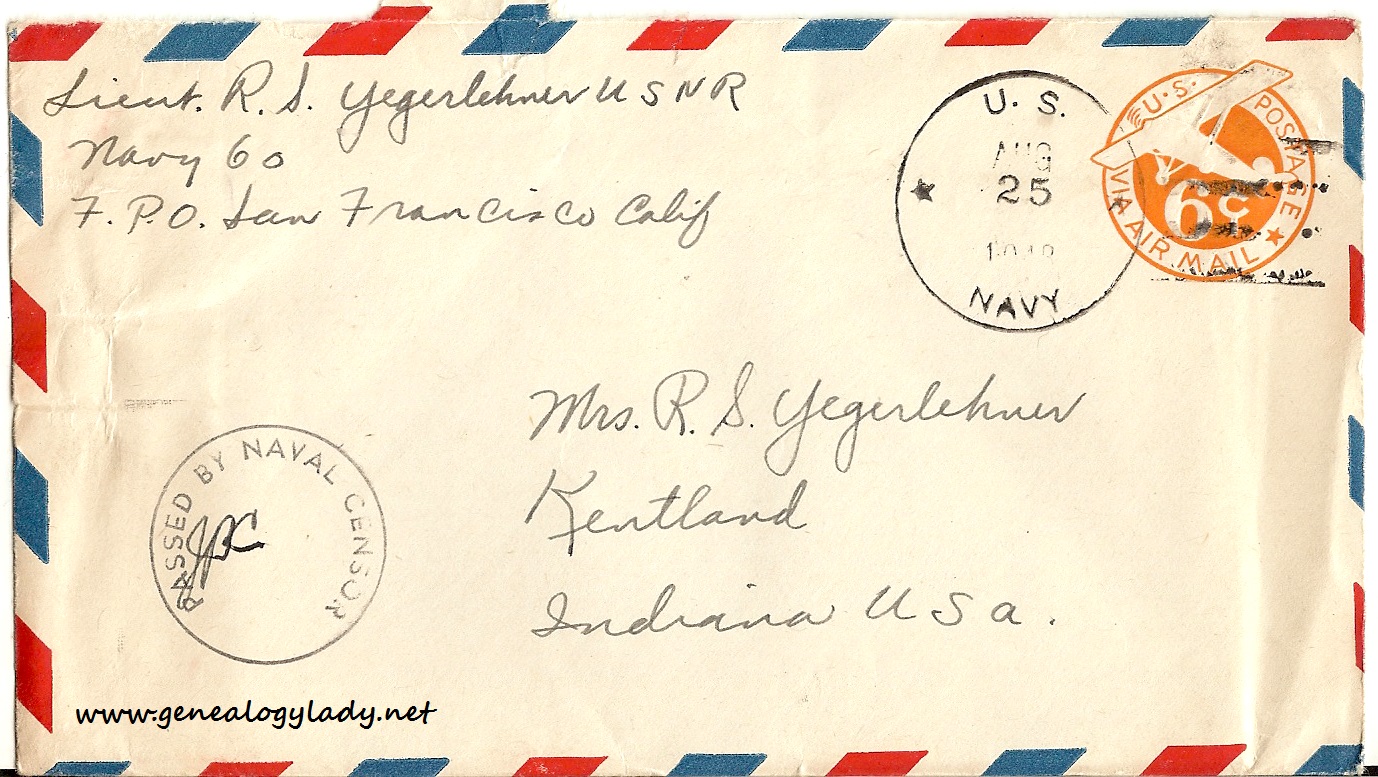 Lieut. R. S. Yegerlehner USNR
Navy 60
F. P. O. San Francisco Calif
U. S.
AUG
25
NAVY
U.S. POSTAGE
6¢
VIA AIR MAIL
Mrs. R. S. Yegerlehner
Kentland
Indiana USA.
PASSED BY NAVAL CENSOR
www.genealogylady.net